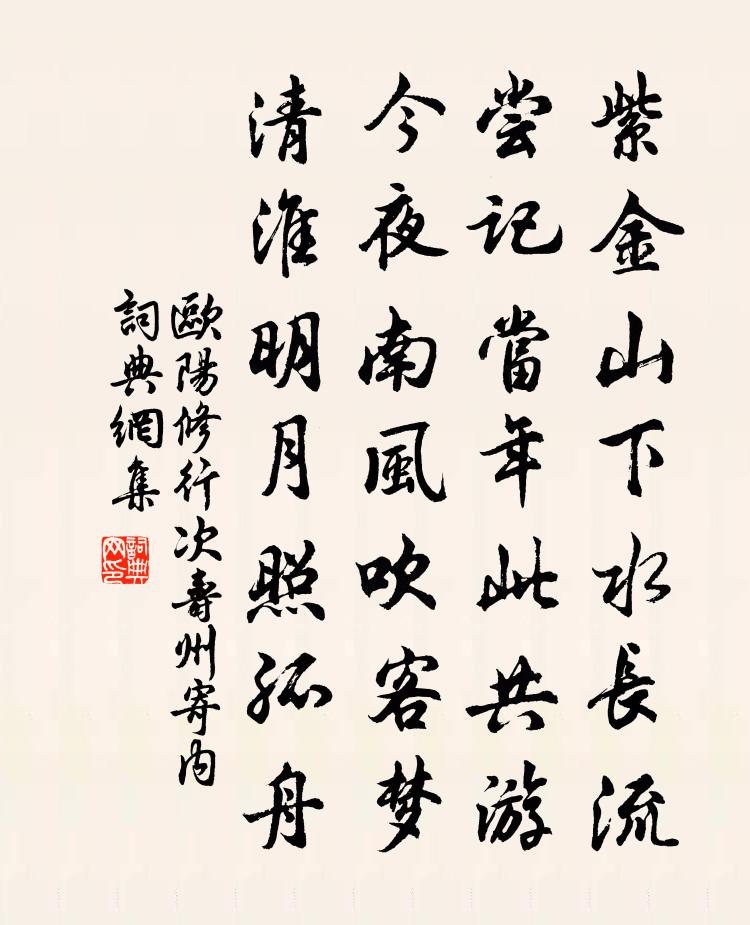 紫金山下水長流
尝記當年此共游
今夜南風吹客梦
清淮明月照孤舟
歐陽修行次壽州寄内
詞典網集
詞典网印